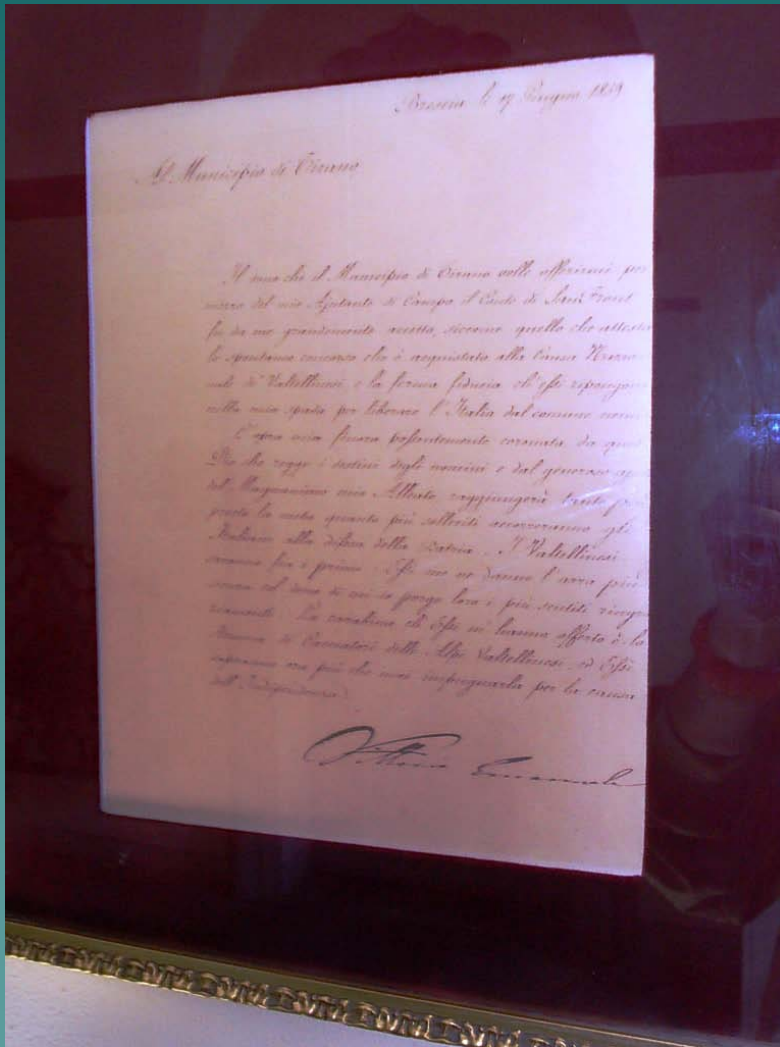 Brescia li 17 Giugno 1859
Al Municipio di Tirano
Il dono che il Municipio di Tirano volle offerirmi per
mezzo del mio Ajutante di Campo il Conte di San Front
fu da me grandemente accetto, siccome quello che attesta
lo spontaneo concorso che è acquistato alla Causa Nazio
nale di Valtellinesi e la ferma fiducia ch'essi ripongono
nella mia spada per liberare l'Italia dal comune nemico
L'opra mia finora possentemente coronata da quel
Dio che regge i destini degli uomini e dal generoso
del Magnanimo mio Alleato raggiungerà tanto più
presto la meta quanto più solleciti accorreranno gli
Italiani alla difesa della Patria. I Valtellinesi
saranno fra i primi. Essi me ne danno l'arra più
sicura col dono di cui io porgo loro i più sentiti ringra
ziamenti. La carabina ch'Essi mi hanno offerto è la
di Cacciatori delle Alpi Valtellinesi, ed Essi
sapranno ora più che mai impugnarla per la causa
dell'Indipendenza.
Vittorio Emanuele